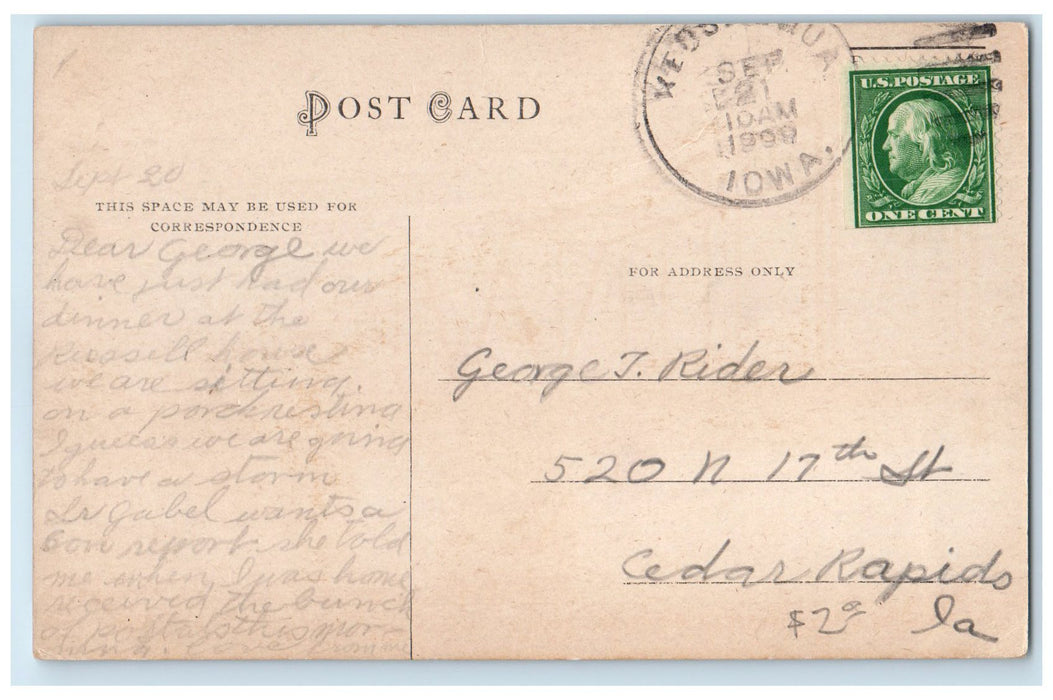 POST CARD
SEP
21
10 AM
1909
IOWA.
U.S. POSTAGE
ONE CENT
Sept 20
THIS SPACE MAY BE USED FOR
CORRESPONDENCE
FOR ADDRESS ONLY
Dear George we
have just had our
dinner at the
Russell house
we are sitting
on a porch resting
I guess we are going
to have a storm
Gabel wants a
report she told
me when I was home
received the bunch
of postals this mor-
ning. love
George T. Rider
520 N 17th St
Cedar Rapids
Ia